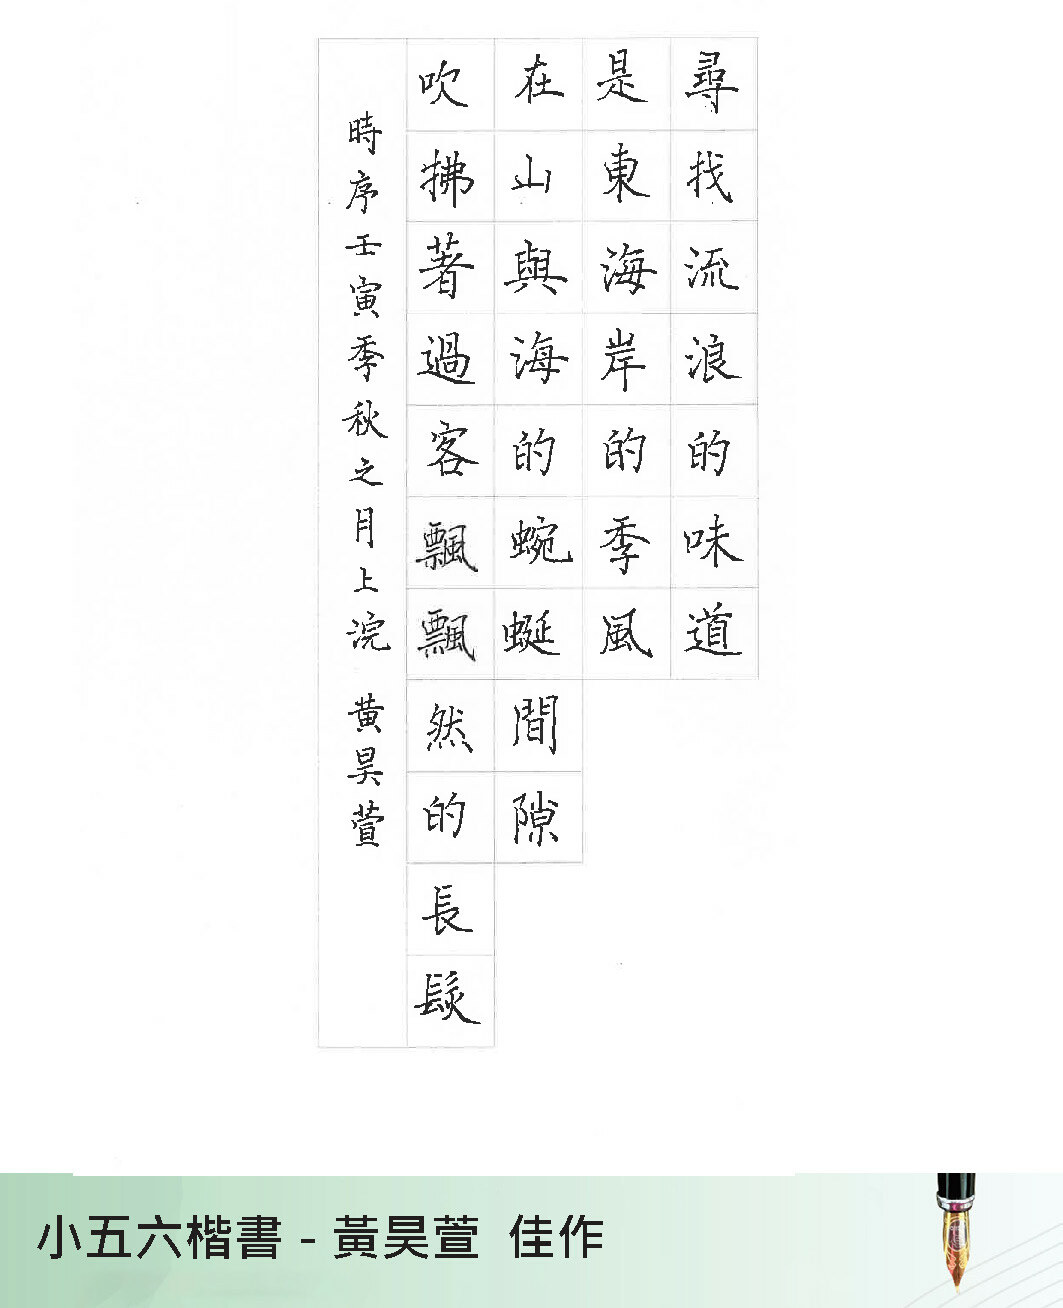 尋找流浪的味道
是東海岸的季風
在山與海的蜿蜒間隙
吹拂著過客飄飄然的長髮
時序壬寅季秋之月上浣 黃昊萱
小五六楷書 - 黃昊萱 佳作